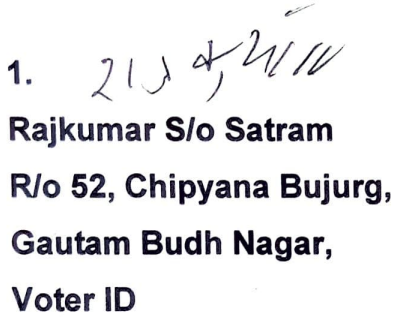 1.
Rajkumar S/o Satram
R/o 52, Chipyana Bujurg,
Gautam Budh Nagar,
Voter ID